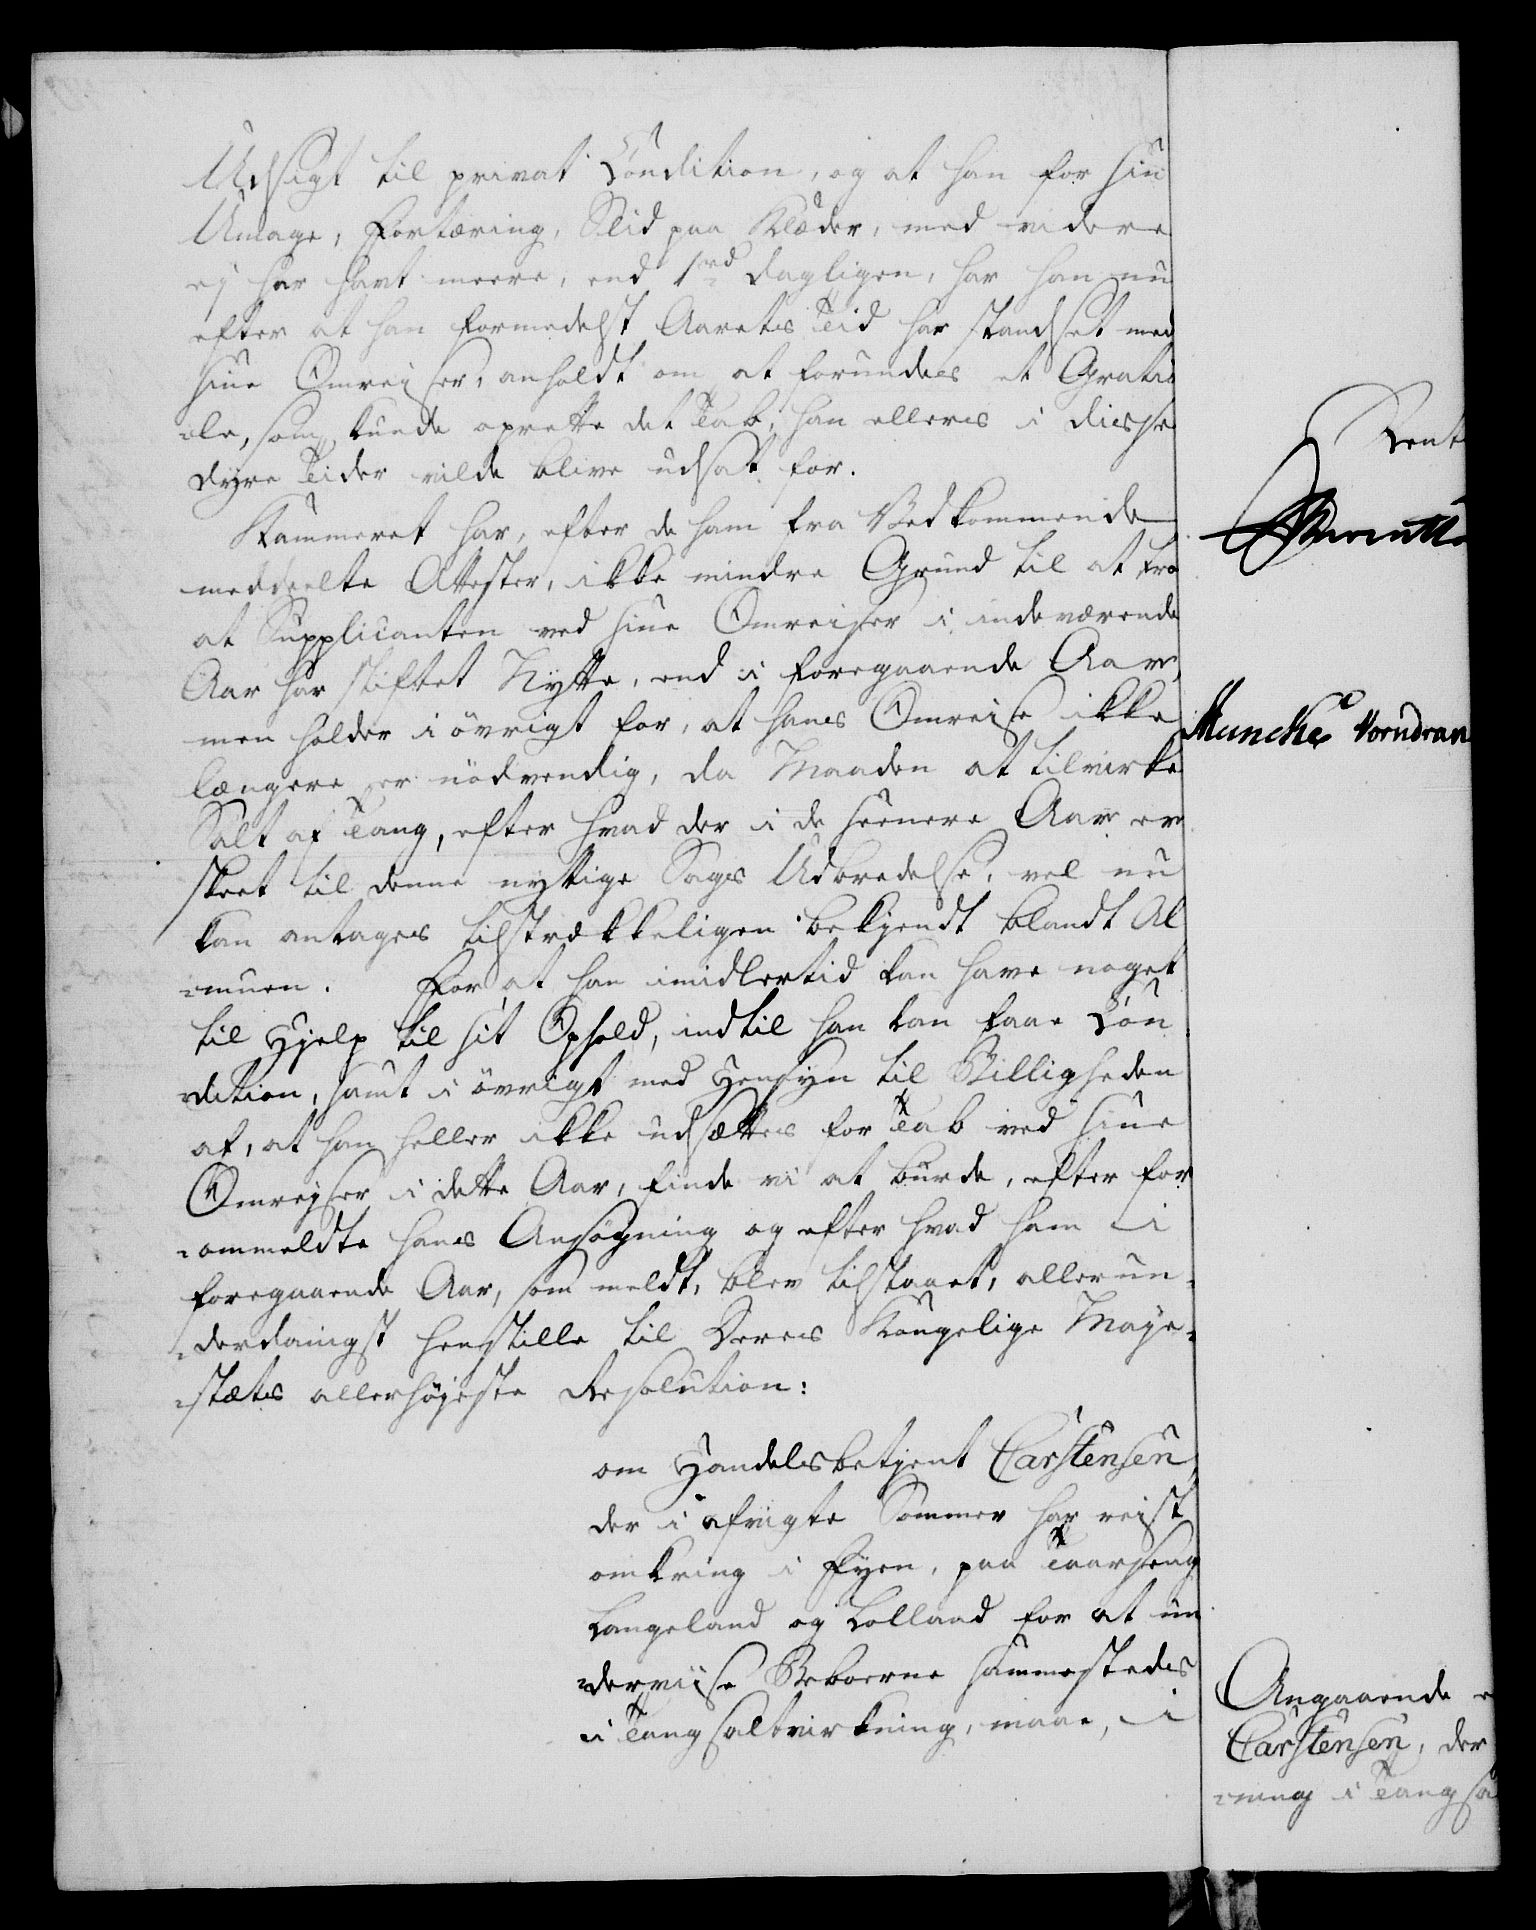 Udsigt til privat Condition, og at han for sin
Umage, Fortæring, Slid paa Klæder, med videre
ej har havt meere, end 1 rd dagligen, har han nu
efter at han formedelst Aarets Tid har standset med
sine Omreiser, anholdt om at forundes et Gratia
=le, som kunde oprette det Tab, han ellers i disse
dyre Tider vilde blive udsat for.
Kammeret har, efter de ham fra Vedkommende
meddeelte Attester, ikke mindre Grund til at troe
at Supplicanten ved sine Omreiser i indeværende
Aar har stiftet Nytte, end i foregaaende Aar,
men holder i övrigt for, at hans Omreise ikke
længere er nödvendig, da Maaden at tilvirke
Salt af Tang, efter hvad der i de seenere Aar er
skeet til denne nyttige Sags Udbredelse, vel nu
kan antages tilstrækkeligen bekjendt blandt Al
=muen. For at han imidlertid kan have noget
til Hjelp til sit Ophold, indtil han kan faae Con
=dition, samt i övrigt med Hensyn til Billigheden
af, at han heller ikke udsættes for Tab ved sine
Omrejser i dette Aar, finde vi at burde, efter for
=ommeldte hans Ansögning og efter hvad ham i
foregaaende Aar, som meldt, blev tilstaaet, allerun=
=derdanigst henstille til Deres Kongelige Maje=
=stæts allerhöjeste Resolution:
om Handelsbetjent Carstensen,
der i afvigte Sommer har reist
omkring i Fyen, paa Taasseng
Langeland og Lolland for at un
=derviise Beboerne sammestedes
i Tangsaltvirkning, maae, i
Rent
Muncke Vorndran
Angaaende e
Carstensen, der
=ning i Tangsa